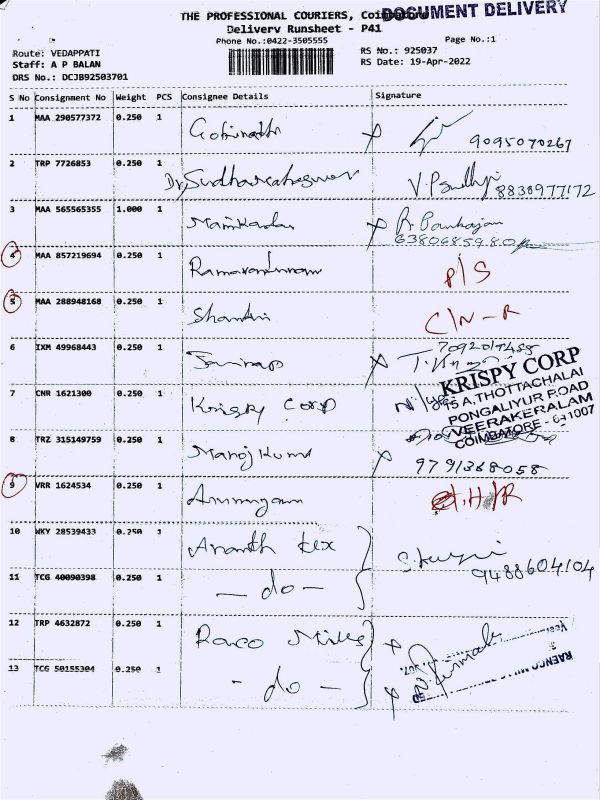 THE PROFESSIONAL COURIERS, Coimbatore
DOCUMENT DELIVERY
Delivery Runsheet - P41
Phone No.:0422-3505555
Page No.:1
Route: VEDAPPATI
RS No.: 925037
Staff: A P BALAN
RS Date: 19-Apr-2022
DRS No.: DCJB92503701
S No Consignment No Weight PCS Consignee Details Signature
1 MAA 290577372 0.250 1 Gobinath 9095070267
2 TRP 7726853 0.250 1 Dr. 8830977172
3 MAA 565565355 1.000 1 Manikandan R. Pankajam
6380685980
4 MAA 857219694 0.250 1 P/S
5 MAA 288948168 0.250 1 Shanthi C/N-R
6 IXM 49968443 0.250 1
7 CNR 1621300 0.250 1 Krispy Corp
KRISPY CORP
THOTTACHALAI
PONGALIYUR ROAD
VEERAKERALAM
COIMBATORE - 641007
8 TRZ 315149759 0.250 1 Manoj Kumar 9791368058
9 VRR 1624534 0.250 1 Arumugam
10 WKY 28539433 0.250 1 Ananth Tex
9488604104
11 TCG 40090398 0.250 1 - do -
12 TRP 4632872 0.250 1 Mills
13 TCG 50155304 0.250 1 - do -